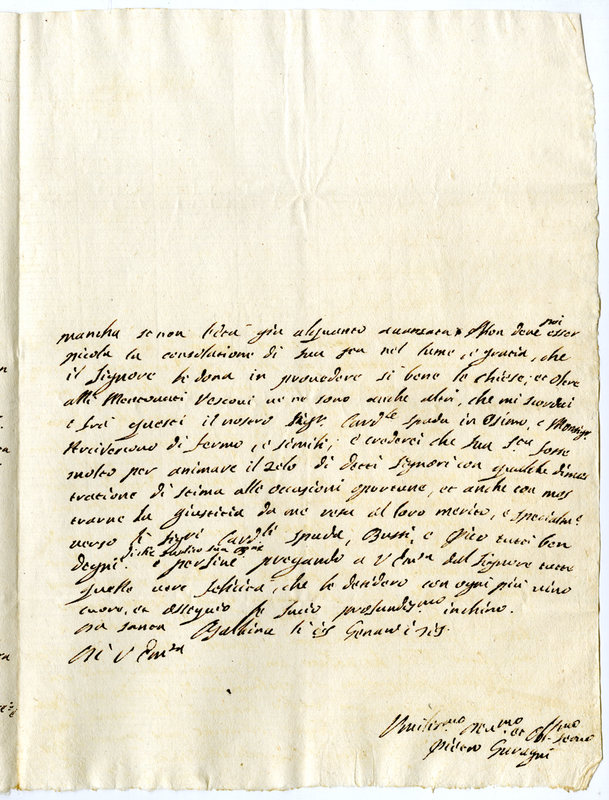 mancha se non l'età già alquanto avanzata. Non deve poi esser
picola la consolatione di Sua Stà nel lume, e gratia, che
il Signore le dona in provedere si bene le chiese; et oltre
alli Vescovi ve ne sono anche altri, che mi scordai
e frà questi il nostro Sigr. Cardle Spada in Osimo, e Monsigr
Arcivescovo di Fermo, e simili; e crederei che Sua Stà fosse
molto per animare il zelo di detti Signori con qualche dimos
tratione di stima alle occasioni oportune, et anche con mos
trarne la giustitia da me resa al loro merito, e specialmte
verso li Sigri Cardli Spada, Bussi, e Pico tutti ben
degni. e per fine pregando a V Emza dal Signore tutte
quelle vere felicità, che le desidero con ogni più vivo
cuore, et ossequio le facio profondissmo inchino.
Da Santa Balbina li
Di V Emza
Umilismo et Obl
Pietro